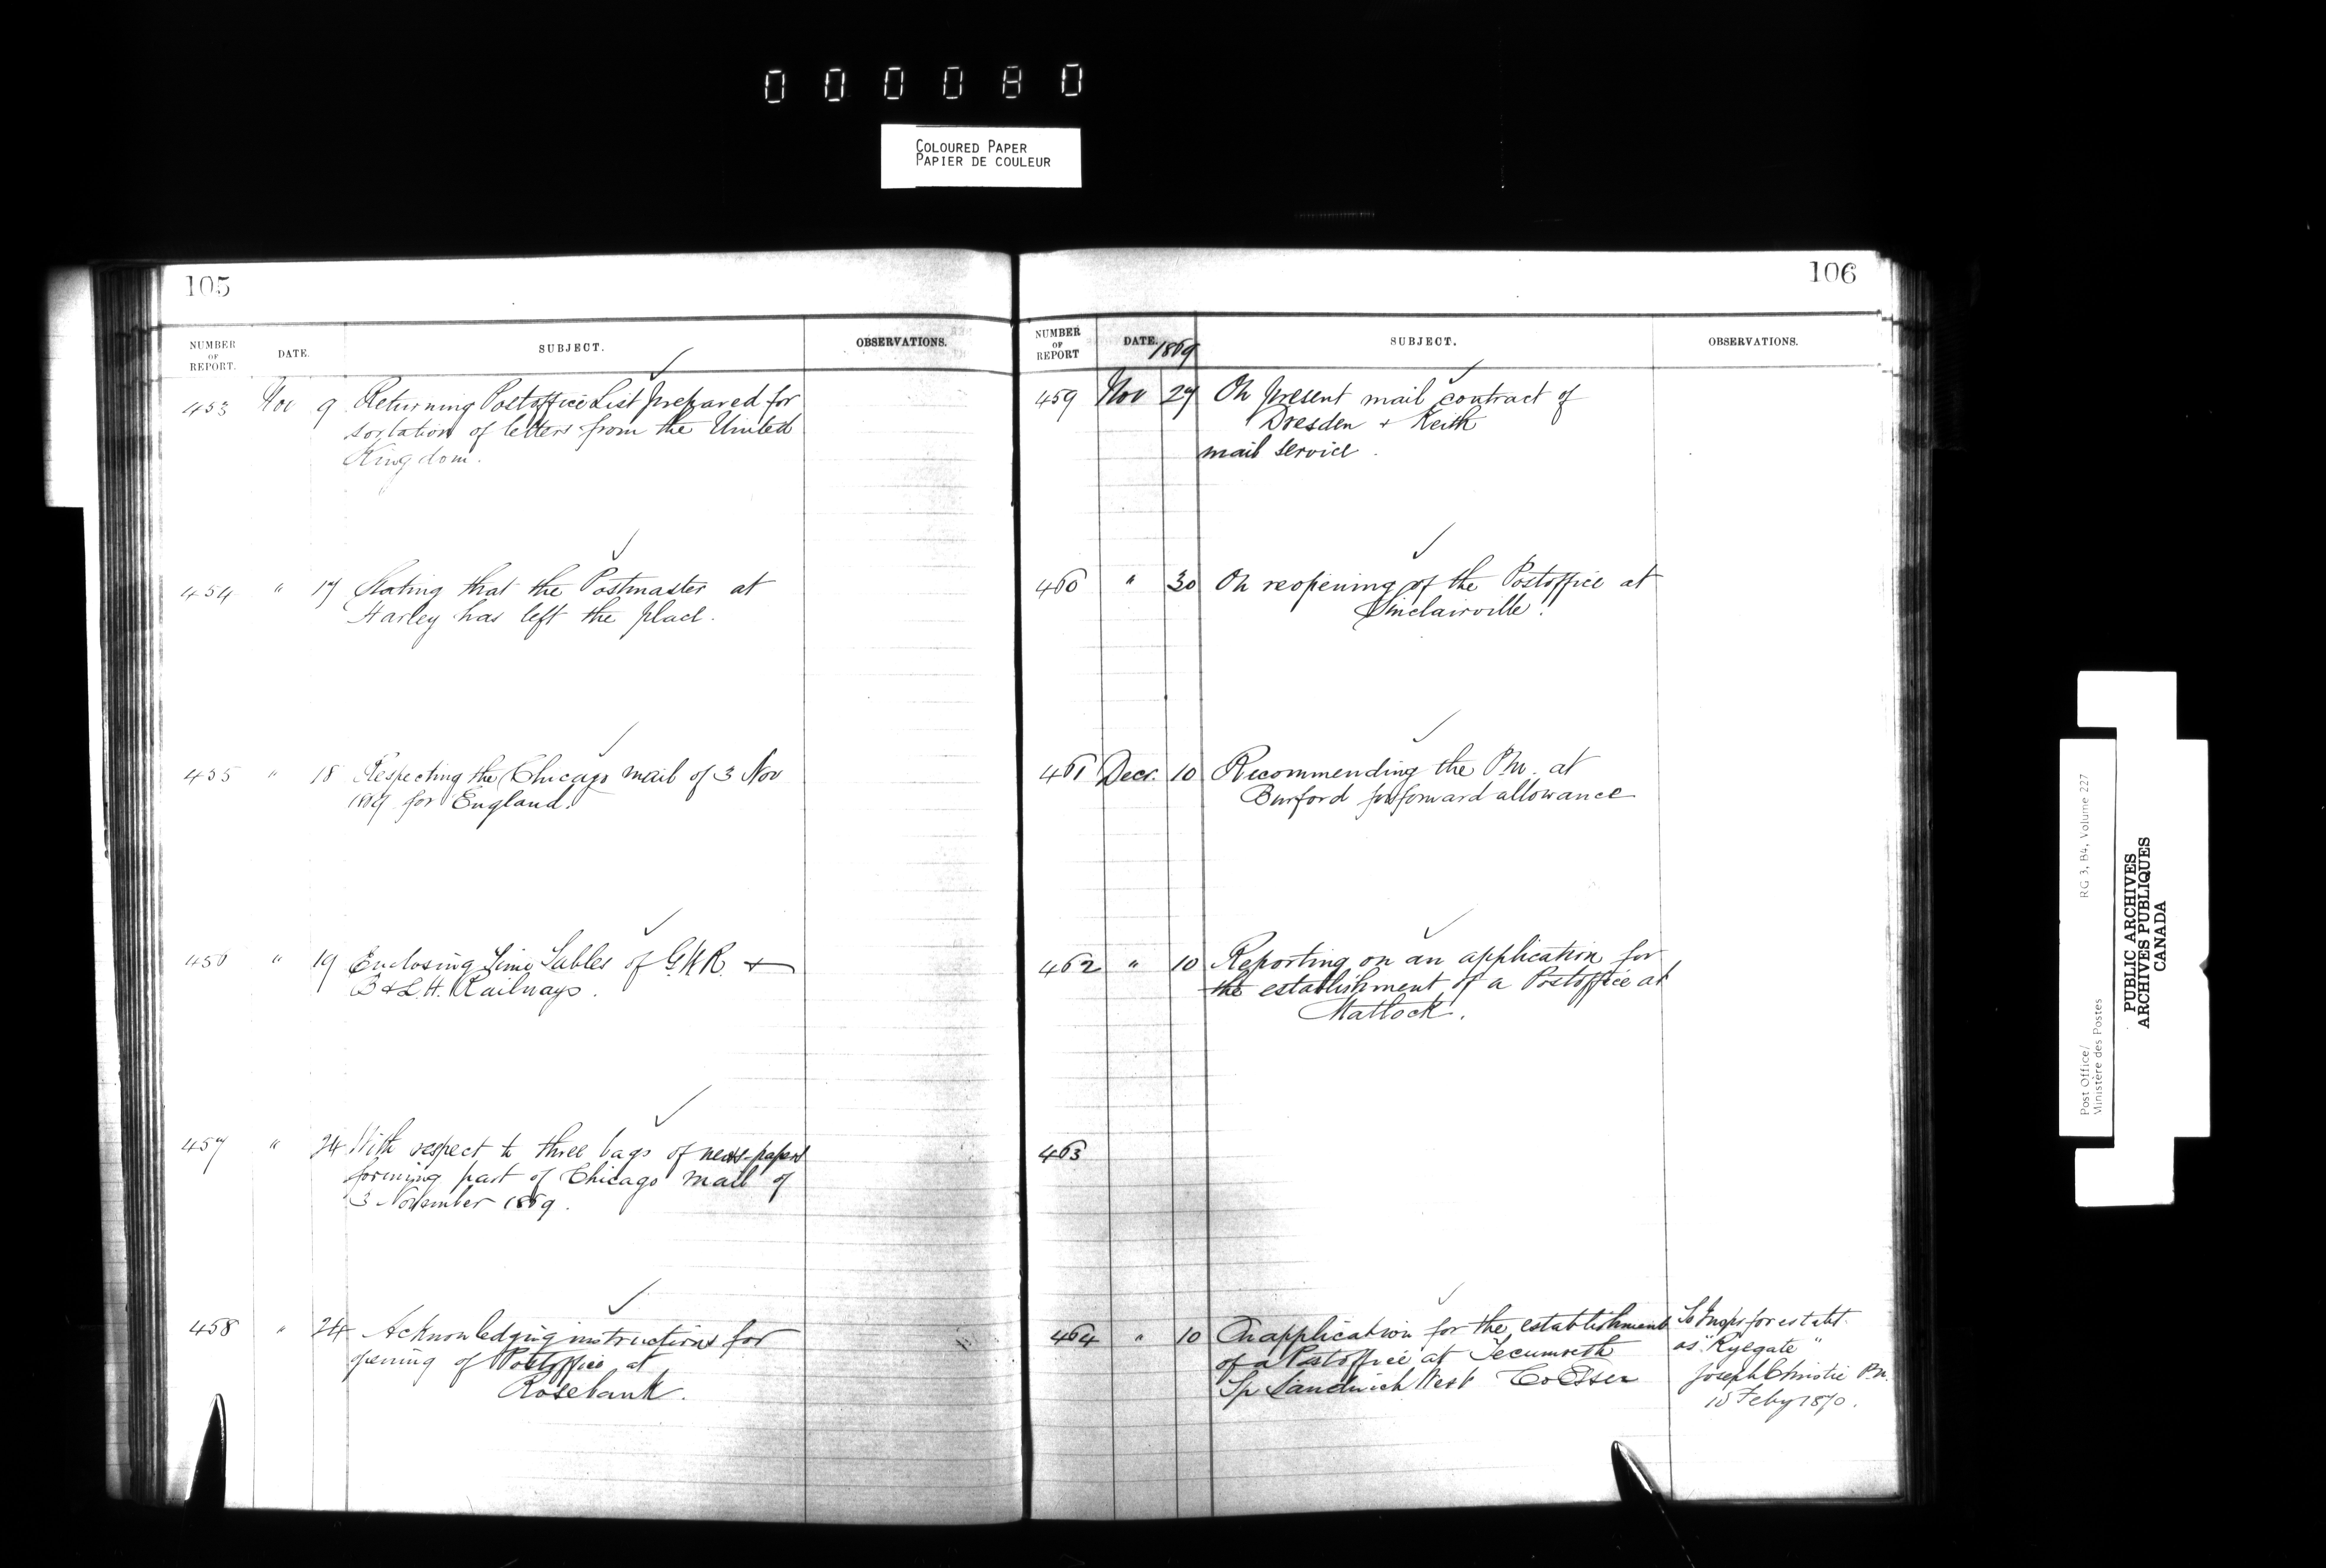 000080
COLOURED PAPER
PAPIER DE COULEUR
105
NUMBER OF REPORT. DATE. SUBJECT. OBSERVATIONS.
453 Nov 9 Returning Postoffice List prepared for
sortation of letters from the United
Kingdom.
454 " 17 Stating that the Postmaster at
Harley has left the place.
455 " 18 Respecting the Chicago mail of 3 Nov
1869 for England.
456 " 19 Enclosing Time Tables of G.W.R. +
B & L.H. Railways.
457 " 24 With respect to three bags of news-papers
forming part of Chicago mail of
3 November 1869.
458 " 24 Acknowledging instructions for
opening of Postoffice at
Rosebank.
106
NUMBER OF REPORT DATE. 1869 SUBJECT. OBSERVATIONS.
459 Nov 29 On present mail contract of
Dresden + Keith
mail service.
460 " 30 On reopening of the Postoffice at
Sinclairville.
461 Decr. 10 Recommending the P.M. at
Burford for forward allowance
462 " 10 Reporting on an application for
the establishment of a Postoffice at
Matlock.
463
464 " 10 On application for the establishment
of a Postoffice at Tecumseth
Tp Sandwich West Co Essex
To Inspr for establt.
as "Ryegate"
Joseph Christie P.M.
18 Feby 1870.
Post Office/
Ministère des Postes
RG 3, B4, Volume 227
PUBLIC ARCHIVES
ARCHIVES PUBLIQUES
CANADA